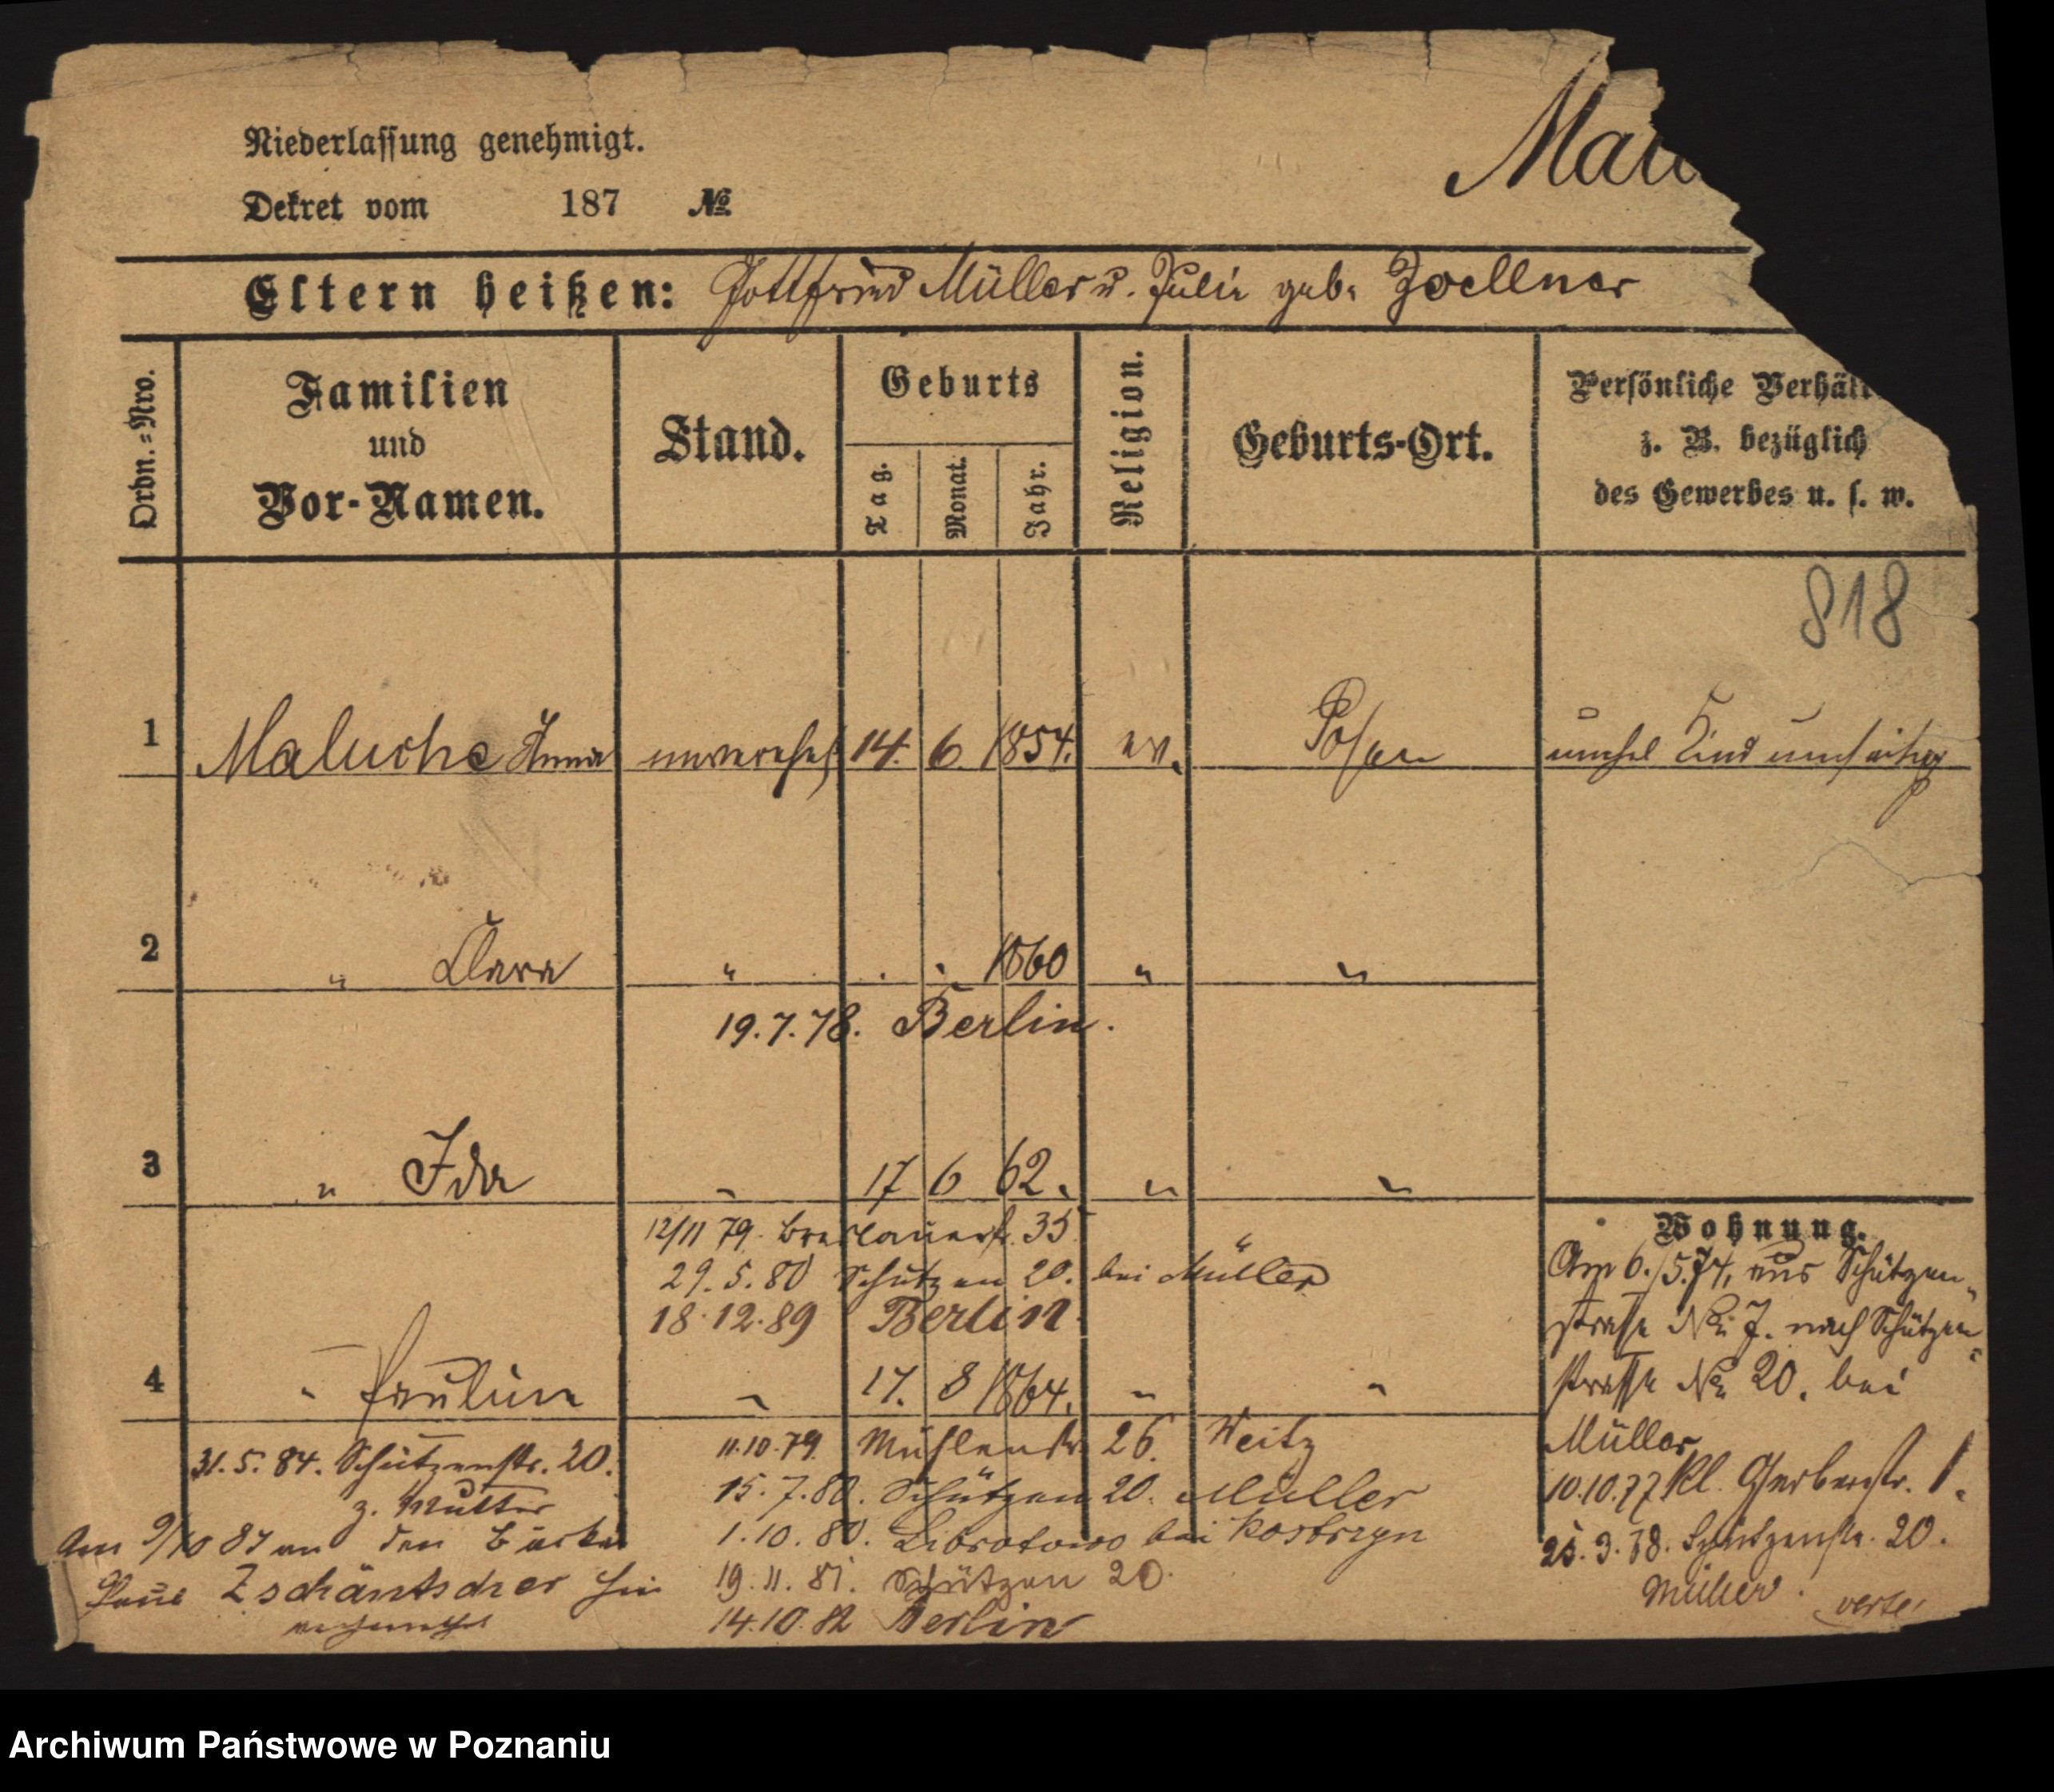 Niederlassung genehmigt.
Dekret vom 187 №
Eltern heißen: Gottfried Müller u. Julie geb. Zoellner
Ordn.=Nro.
Familien
und
Vor-Namen.
Stand.
Geburts
Tag.
Monat.
Jahr.
Religion.
Geburts-Ort.
Persönliche
z. B. bezüglich
des Gewerbes u. s. w.
818
1 Maluche Anna unverehel 14. 6. 1854. ev. Posen unehel Kind umseitig
2 " Clara " . . 1860 " "
19.7.78. Berlin.
3 " Ida " 17 6 62. " "
12/11 79. Breslauerstr. 35
29.5.80 Schützen 20. bei Müller
18.12.89 Berlin.
4 " Pauline " 17. 8 1864. " "
31.5.84. Schützenstr. 20.
z. Mutter
Am 9/10 87 an den
Paul Zschäntscher hier
11.10.79. Mühlenstr 26. Weitz
15.7.80. Schützen 20. Müller
1.10.80. bei Kostrzyn
19.11.81. Schützen 20.
14.10.82 Berlin
Wohnung.
Am 6./5.74. aus Schützen-
straße No. 7. nach Schützen-
straße No. 20. bei
Müller
10.10.77 Kl. Gerberstr. 1.
25.3.78. Schützenstr. 20.
Müller. verte!
Archiwum Państwowe w Poznaniu